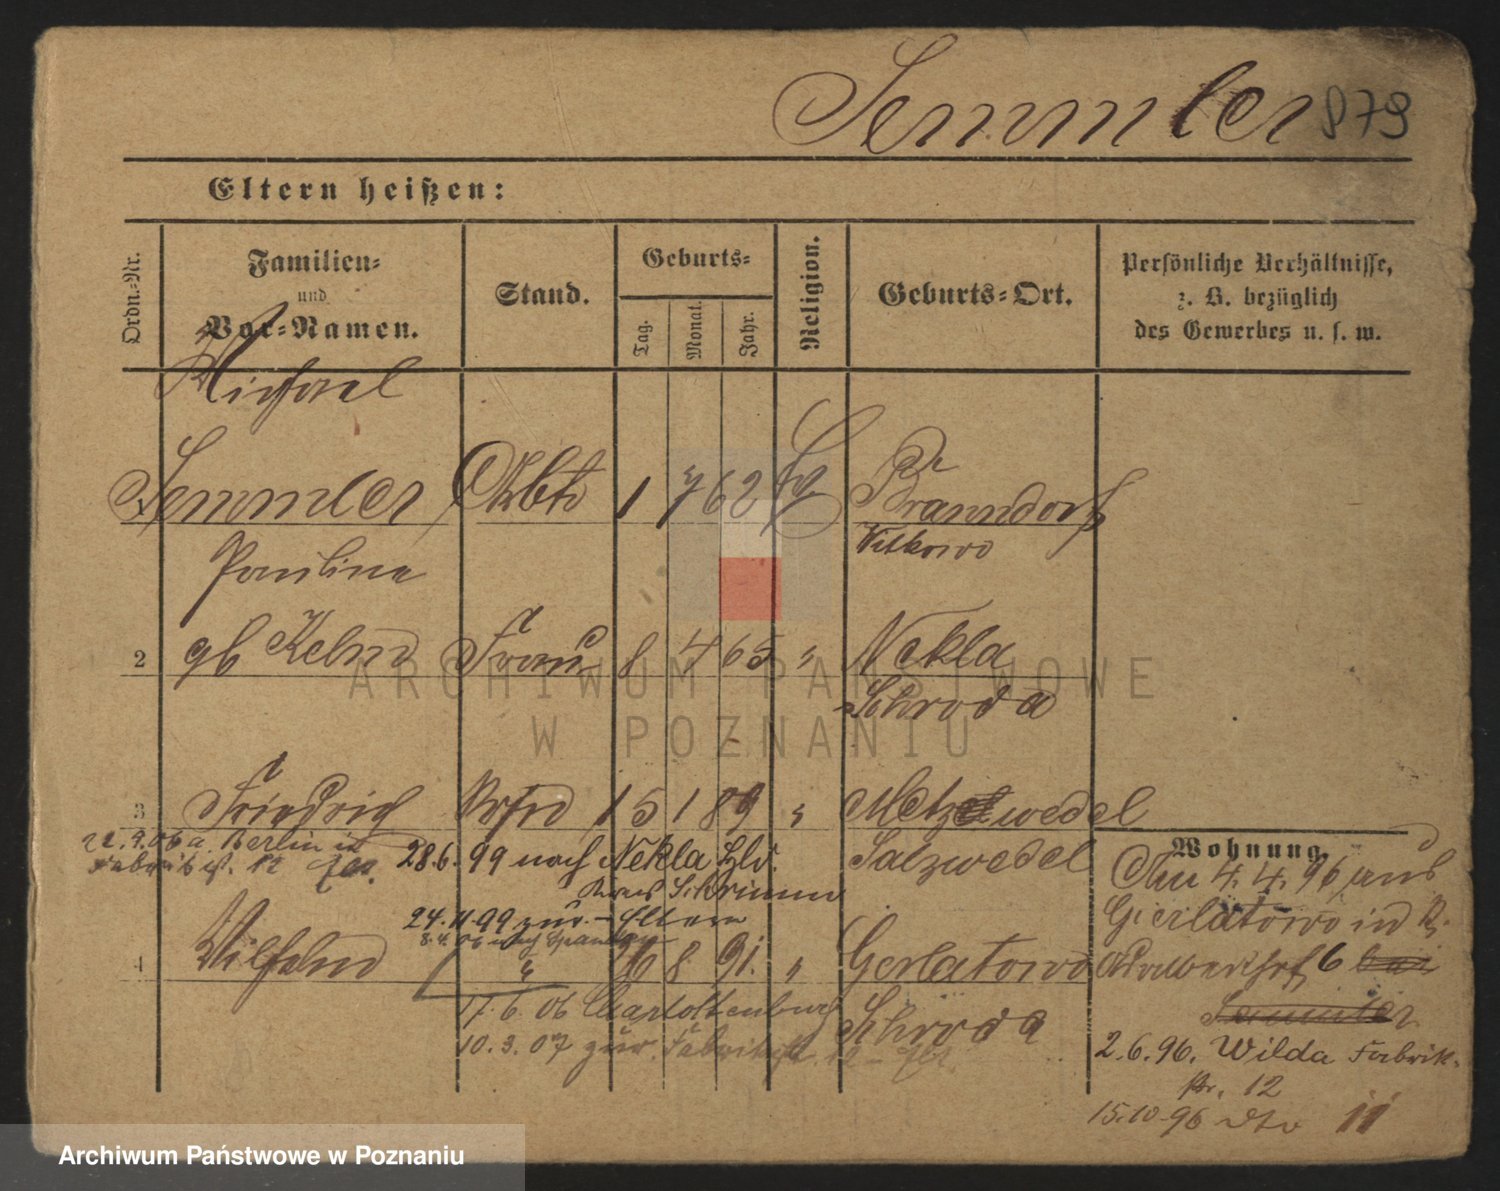 Semmler 879
Eltern heißen:
Ordn.-Nr.
Familien-
und
Vor-Namen.
Stand.
Geburts-
Tag.
Monat.
Jahr.
Religion.
Geburts-Ort.
Persönliche Verhältnisse,
z. B. bezüglich
des Gewerbes u. s. w.
Michael
Semmler Arbtr 1 7 62 Ev Branndorf
Witkowo
Pauline
2 gb Frau 8 4 65 " Nekla
Schroda
3 Friedrich 15 1 89 " wedel
22.9.06 a. Berlin
Fabrikst. 12
28.6.99 nach Nekla
Kreis Schrimm
24.11.99 zur. Eltern
8.4.06 nach Spandau
Salzwedel
4 Wilhelm 26 8 91. " Gerlatowo
Schroda
17.6.06 Charlottenburg
10.3.07 zur. Fabrikst. 12
Wohnung.
4.4.96 aus
Gierlatowo in
6 bei
Semmler
2.6.96. Wilda Fabrik-
str. 12
15.10.96 dto 11
ARCHIWUM PAŃSTWOWE
W POZNANIU
Archiwum Państwowe w Poznaniu